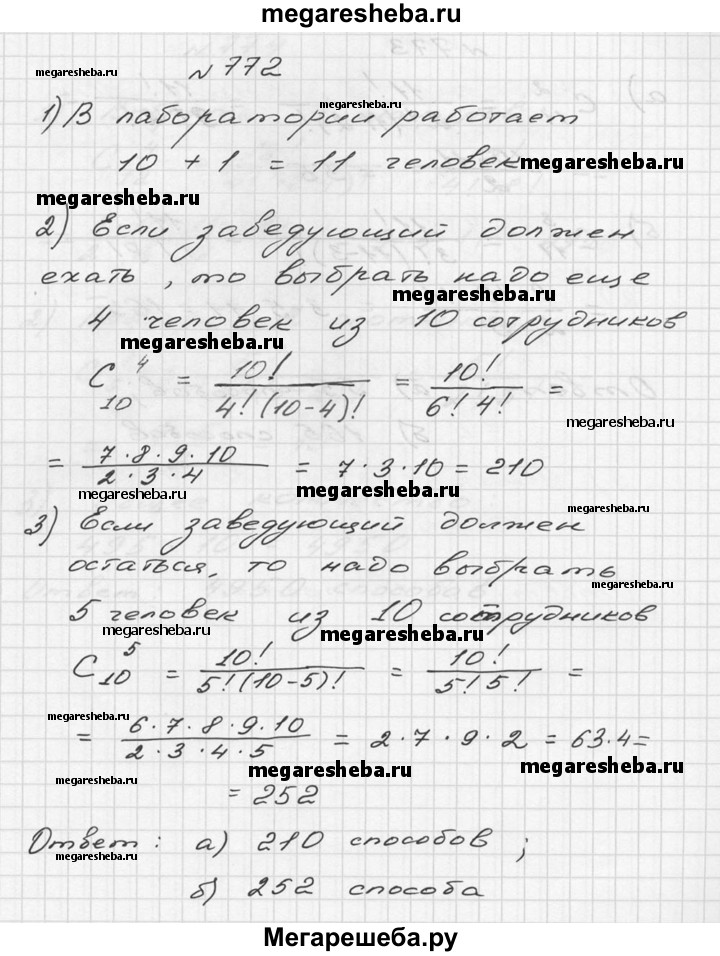 megaresheba.ru
№ 772
megaresheba.ru
megaresheba.ru
1) В лаборатории работает
10 + 1 = 11 человек
megaresheba.ru
megaresheba.ru
2) Если заведующий должен
ехать, то выбрать надо еще
megaresheba.ru
4 человек из 10 сотрудников
megaresheba.ru
C₁₀⁴ = 10! / 4!(10-4)! = 10! / 6! 4! =
megaresheba.ru
= 7·8·9·10 / 2·3·4 = 7·3·10 = 210
megaresheba.ru
megaresheba.ru
megaresheba.ru
3) Если заведующий должен
остаться, то надо выбрать
megaresheba.ru
5 человек из 10 сотрудников
megaresheba.ru
megaresheba.ru
C₁₀⁵ = 10! / 5!(10-5)! = 10! / 5! 5! =
megaresheba.ru
megaresheba.ru
= 6·7·8·9·10 / 2·3·4·5 = 2·7·9·2 = 63·4=
megaresheba.ru
megaresheba.ru
megaresheba.ru
= 252
Ответ: а) 210 способов;
megaresheba.ru
megaresheba.ru
б) 252 способа
Мегарешеба.ру